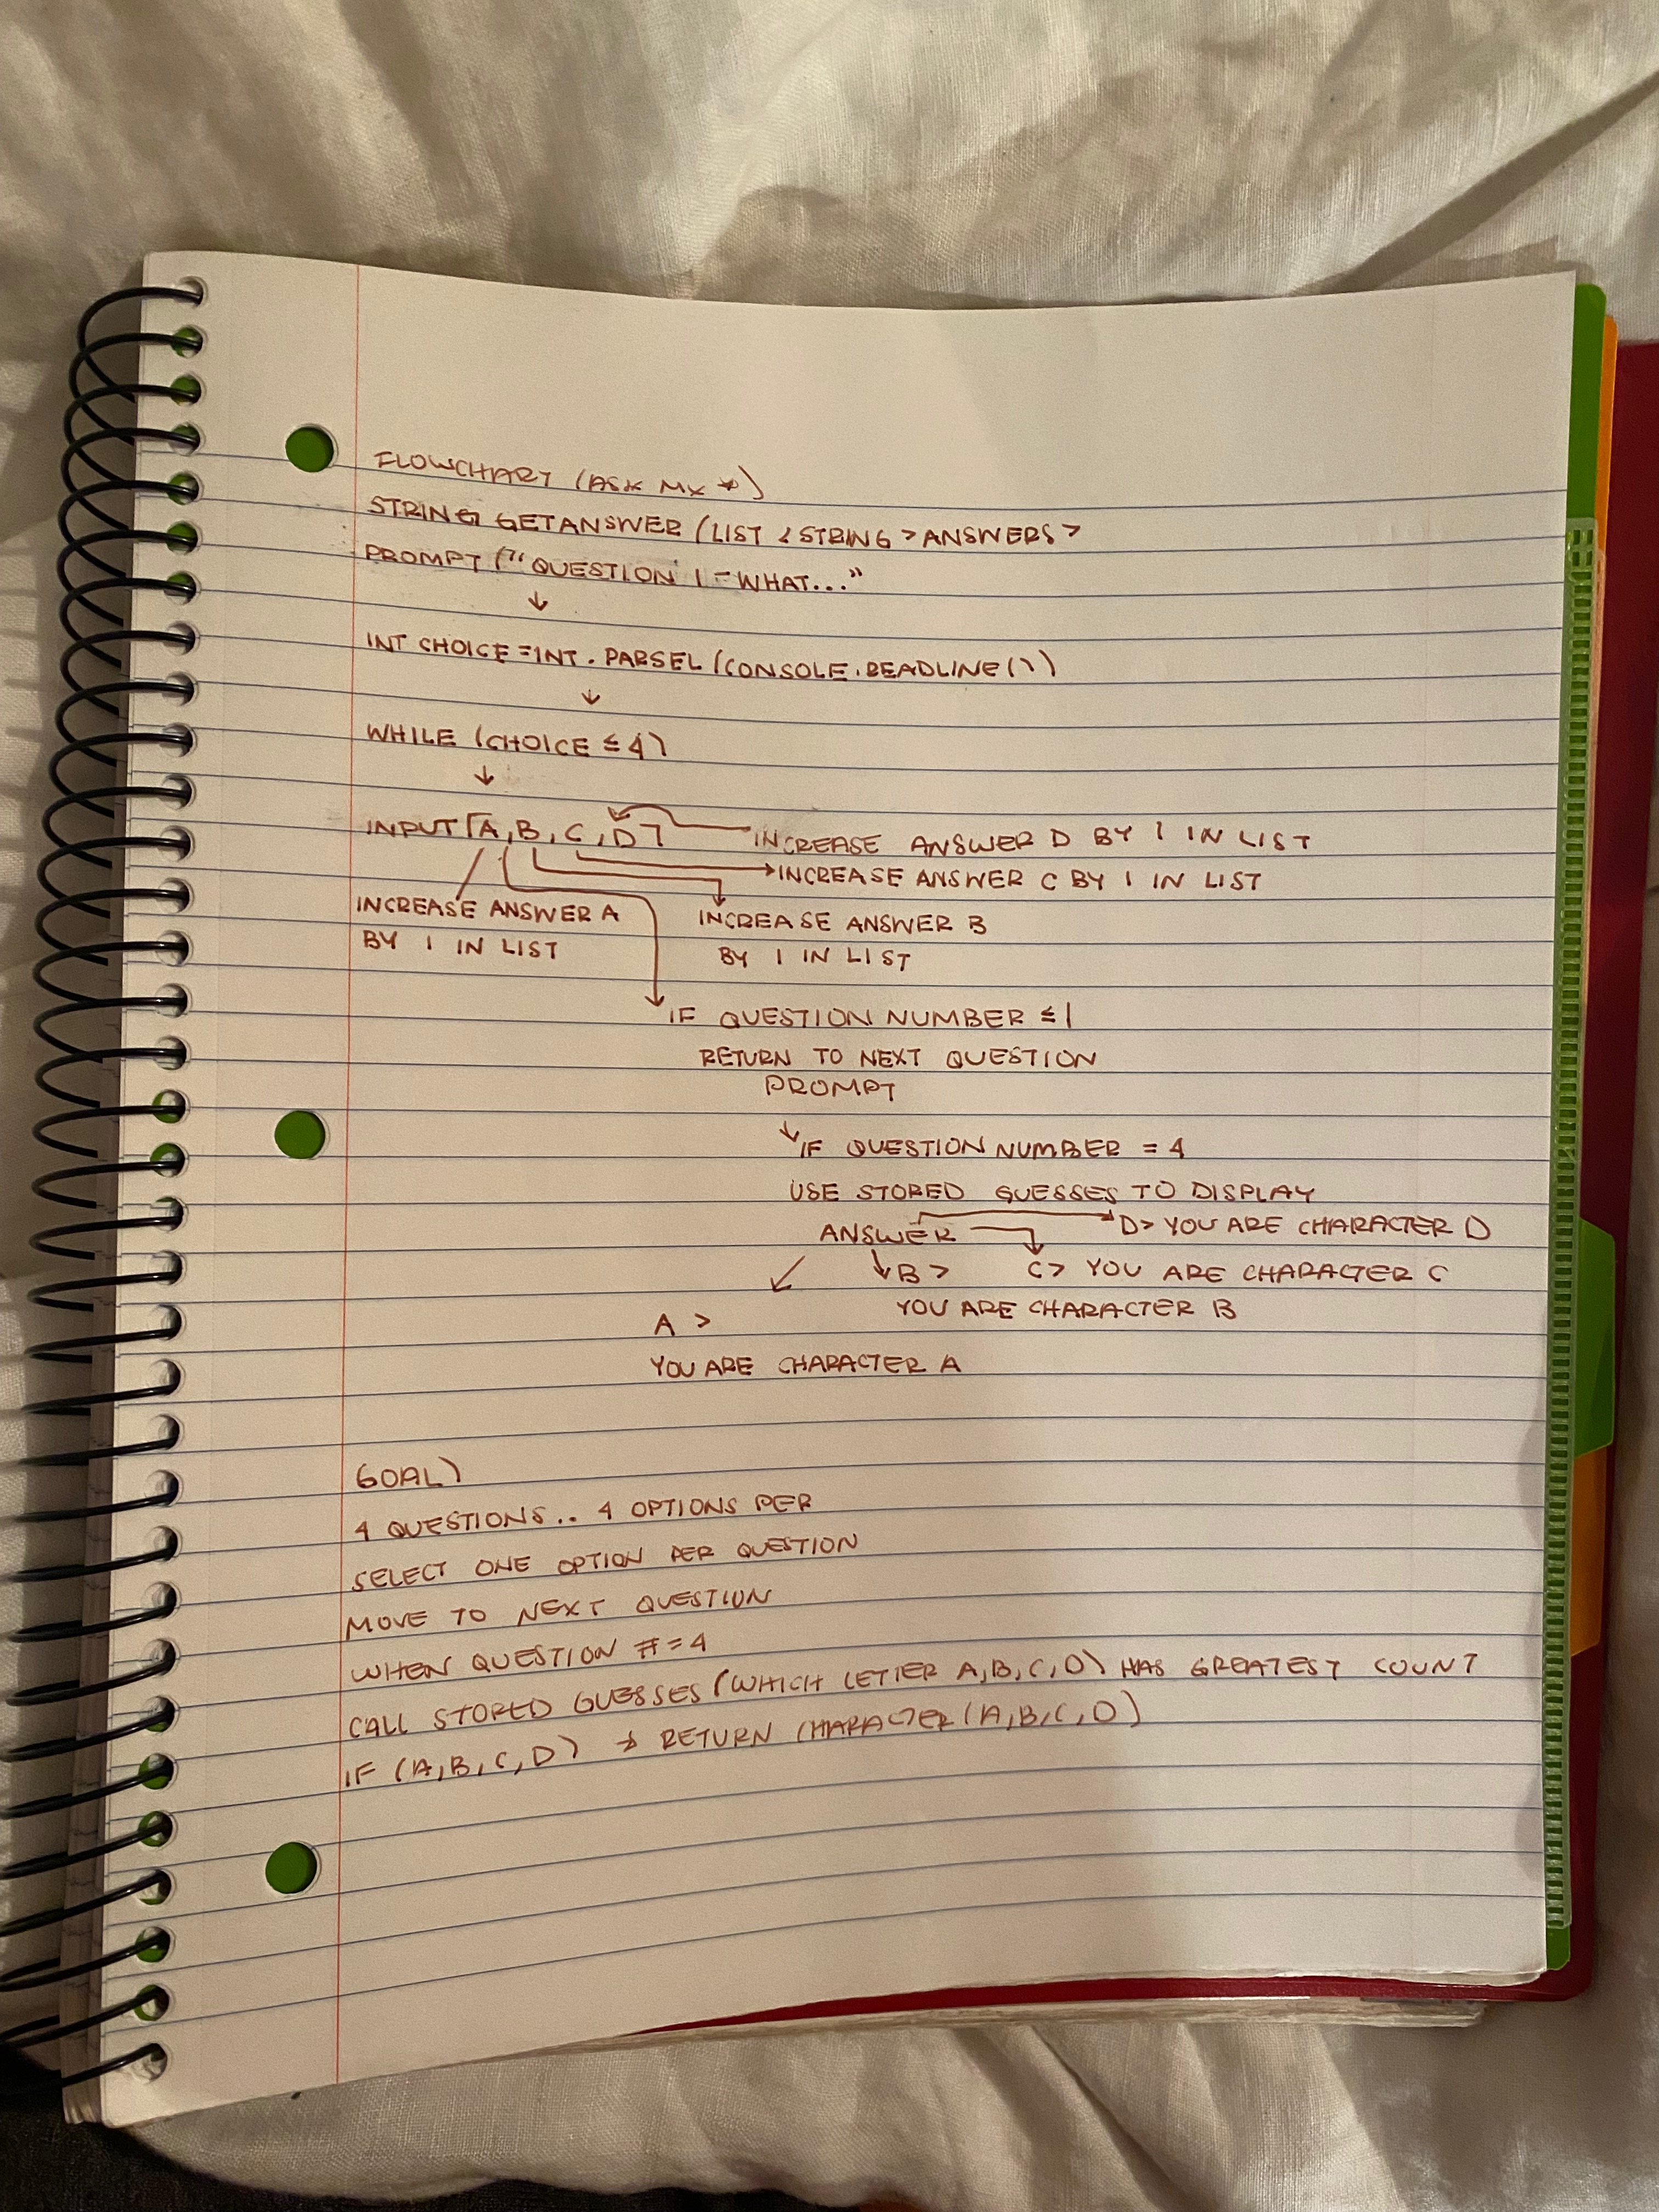 FLOWCHART (ASK MX *)
STRING GETANSWER (LIST < STRING > ANSWERS >
PROMPT ("QUESTION 1 - WHAT..."
↓
INT CHOICE = INT . PARSEL (CONSOLE . READLINE ( ) )
↓
WHILE (CHOICE ≤ 4)
↓
INPUT [A, B, C, D]
INCREASE ANSWER D BY 1 IN LIST
INCREASE ANSWER C BY 1 IN LIST
INCREASE ANSWER A
BY 1 IN LIST
INCREASE ANSWER B
BY 1 IN LIST
IF QUESTION NUMBER ≤ 1
RETURN TO NEXT QUESTION
PROMPT
↓ IF QUESTION NUMBER = 4
USE STORED GUESSES TO DISPLAY
ANSWER
D > YOU ARE CHARACTER D
B >
C > YOU ARE CHARACTER C
YOU ARE CHARACTER B
A >
YOU ARE CHARACTER A
GOAL)
4 QUESTIONS.. 4 OPTIONS PER
SELECT ONE OPTION PER QUESTION
MOVE TO NEXT QUESTION
WHEN QUESTION # = 4
CALL STORED GUESSES (WHICH LETTER A, B, C, D) HAS GREATEST COUNT
IF (A, B, C, D) → RETURN CHARACTER (A, B, C, D)